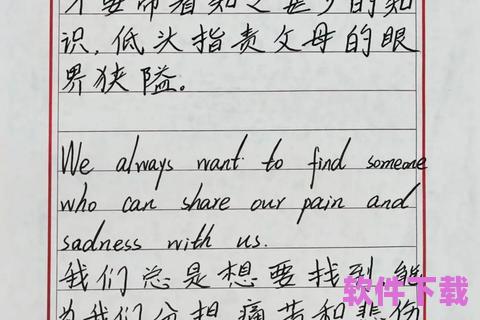 不要带着父母给的知
识,低头指责父母的眼
界狭隘。
We always want to find someone
who can share our pain and
sadness with us.
我们总是想要找到能
为我们分担痛苦和悲伤
软件下载